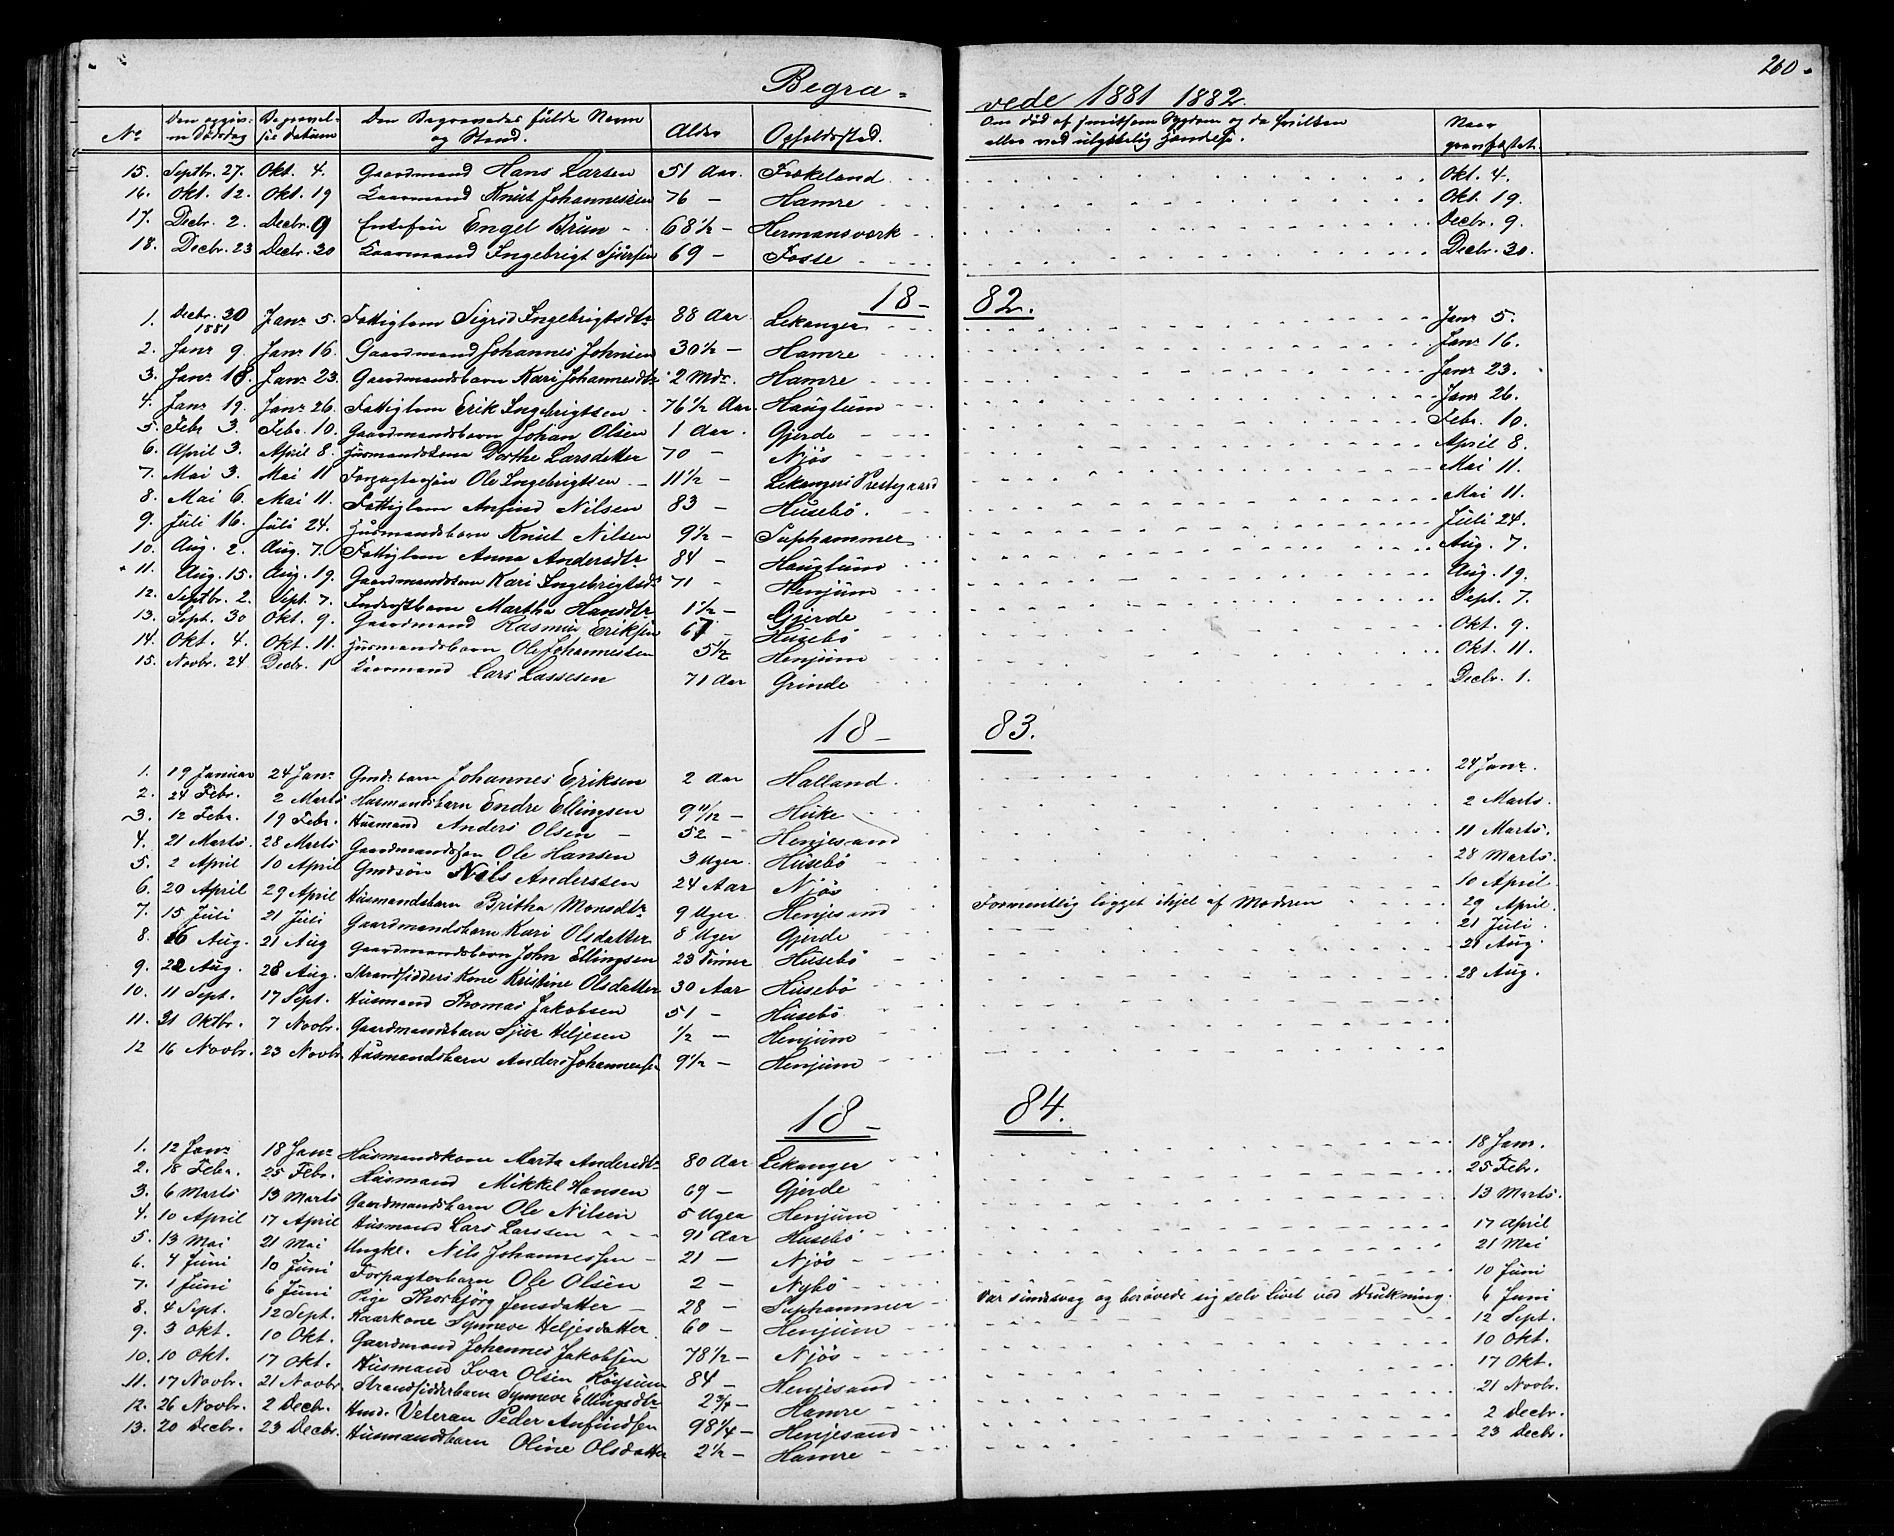 260.
Begra- vede 1881 1882.
No Den opgivne Dödsdag Begravelses Datum Den Begravedes fulde Navn og Stand. Alder Opholdssted. Om død af smitsom Sygdom og da hvilken eller ved ulykkelig Hændelse. Naar gravfæstet.
15. Septbr. 27. Okt. 4. Gaardmand Hans Larsen 51 Aar. Frökeland Okt. 4.
16. Okt. 12. Okt. 19 Kaarmand Knut Johannessen 76 - Hamre Okt. 19.
17. Decbr. 2. Decbr. 9 Enkefru Engel Brun 68 1/2 - Hermansverk Decbr. 9.
18. Decbr. 23 Decbr. 30 Kaarmand Ingebrigt Sjursen 69 - Fosse Decbr. 30.
18- 82.
1. Decbr. 30 1881 Janr 5. Fattiglem Sigrid Ingebrigtsdtr 88 Aar Lekanger Janr 5.
2. Janr 9. Janr 16. Gaardmand Johannes Johnsen 30 1/2 - Hamre Janr 16.
3. Janr 18. Janr 23. Gaardmandsbarn Kari Johannesdtr 2 Mdr. Hamre Janr 23.
4. Janr 19. Janr 26. Fattiglem Erik Ingebrigtsen 76 1/2 Aar Hauglum Janr 26.
5. Febr 3. Febr. 10. Gaardmandsbarn Johan Olsen 1 Aar. Gjerde Febr. 10.
6. April 3. April 8. Husmandskone Dorthe Larsdatter 70 - Njös April 8.
7. Mai 3. Mai 11 Forpagtersön Ole Ingebrigtsen 11 1/2 - Lekangers Prestegaard Mai 11.
8. Mai 6. Mai 11. Fattiglem Anfind Nilsen 83 - Husebö. Mai 11.
9. Juli 16. Juli 24. Husmandsbarn Knut Nilsen 9 1/2 - Suphammer Juli 24.
10. Aug. 2. Aug. 7. Fattiglem Anna Andersdtr 84 - Hauglum Aug. 7.
11. Aug. 15. Aug. 19. Gaardmandskone Kari Ingebrigtsdtr 71 - Henjum Aug. 19.
12. Septbr. 2. Sept. 7. Inderstbarn Martha Hansdtr 1 1/2 - Gjerde Sept. 7.
13. Sept. 30 Okt. 9. Gaardmand Rasmus Eriksen 67 - Husebö Okt. 9.
14. Okt. 4. Okt. 11. Husmandsbarn Ole Johannessen 5 1/2 Henjum Okt. 11.
15. Novbr. 24 Decbr. 1 Kaarmand Lars Lassesen 71 Aar Grinde Decbr. 1.
18- 83.
1. 19 Januar 24 Janr Gmds barn Johannes Eriksen 2 Aar Halland. 24 Janr.
2. 24 Febr. 2 Marts Husmandsbarn Endre Ellingsen 9 11/12 - Huke 2 Marts.
3. 12 Febr. 19 Febr. Husmand Anders Olsen 52 - Henjesand 11 Marts.
4. 21 Marts 28 Marts Gaardmandssøn Ole Hansen 3 Uger. Husebö 28 Marts.
5. 2 April 10 April Gmdsön Nils Anderssen 24 Aar Njös 10 April.
6. 20 April 29 April Husmandsbarn Britha Monsdtr 9 Uger Henjesand Formentlig ligget ihjel af Moderen 29 April.
7. 15 Juli 21 Juli Gaardmandsbarn Kari Olsdatter 8 Uger Gjerde 21 Juli.
8. 16 Aug. 21 Aug Gaardmandsbarn John Ellingsen 23 Timer Husebö 21 Aug.
9. 22 Aug. 28 Aug. Strandsidders Kone Kristine Olsdatter 30 Aar Husebö 28 Aug.
10. 11 Sept. 17 Sept. Husmand Thomas Jakobsen 51 - Husebö
11. 31 Oktbr. 7 Novbr. Gaardmandsbarn Sjur Heljesen 1/2 - Henjum
12 16 Novbr. 23 Novbr Husmandsbarn Anders Johannessen 9 1/2 - Henjum
18- 84.
1. 12 Janr 18 Janr Husmandskone Marta Andersdtr 80 Aar Lekanger 18 Janr.
2. 18 Febr. 25 Febr. Husmand Mikkel Hansen 69 - Gjerde 25 Febr.
3. 6 Marts 13 Marts Gaardmandsbarn Ole Nilsen 5 Uger Henjum 13 Marts.
4. 10 April 17 April Husmand Lars Larssen 91 Aar Husebö 17 April
5. 13 Mai 21 Mai Ungkl. Nils Johannessen 21 - Njös 21 Mai
6. 4 Juni 10 Juni Forpagterbarn Ole Olsen 2 - Nybö 10 Juni
7. 1 Juni 6 Juni Pige Thorbjörg Jensdatter 28 - Suphammer Var sindssvag og berøvede sig selv Livet ved Drukning. 6 Juni
8. 4 Sept. 12 Sept. Kaarkone Synneve Heljesdatter 60 - Henjum 12 Sept.
9. 3 Okt. 10 Okt. Gaardmand Johannes Jakobsen 78 1/2 - Njös 10 Okt.
10. 10 Okt. 17 Okt. Husmand Ivar Olsen Röysum 84 - Henjesand 17 Okt.
11. 17 Novbr. 21 Novbr. Strandsidderbarn Synneve Ellingsdtr 2 3/4 - Hamre 21 Novbr.
12. 26 Novbr. 2 Decbr. Hmd. Veteran Peder Anfindsen 98 1/4 - Henjesand 2 Decbr.
13. 20 Decbr. 23 Decbr. Husmandsbarn Oline Olsdatter 2 1/2 - Hamre 23 Decbr.